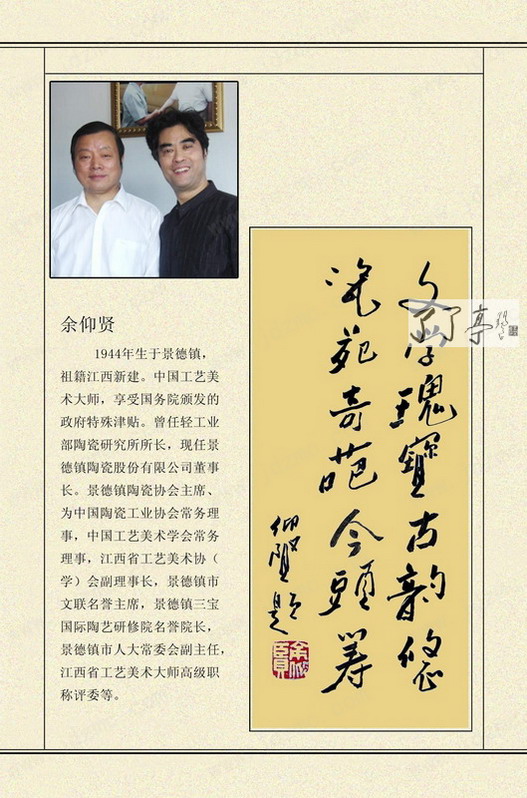 余仰贤
1944年生于景德镇，
祖籍江西新建。中国工艺美
术大师，享受国务院颁发的
政府特殊津贴。曾任轻工业
部陶瓷研究所所长，现任景
德镇陶瓷股份有限公司董事
长。景德镇陶瓷协会主席、
为中国陶瓷工业协会常务理
事，中国工艺美术学会常务
理事，江西省工艺美术协（
学）会副理事长，景德镇市
文联名誉主席，景德镇三宝
国际陶艺研修院名誉院长，
景德镇市人大常委会副主任，
江西省工艺美术大师高级职
称评委等。
瑰寶古韵悠
瓷苑奇葩今頭籌
仰賢題
亭